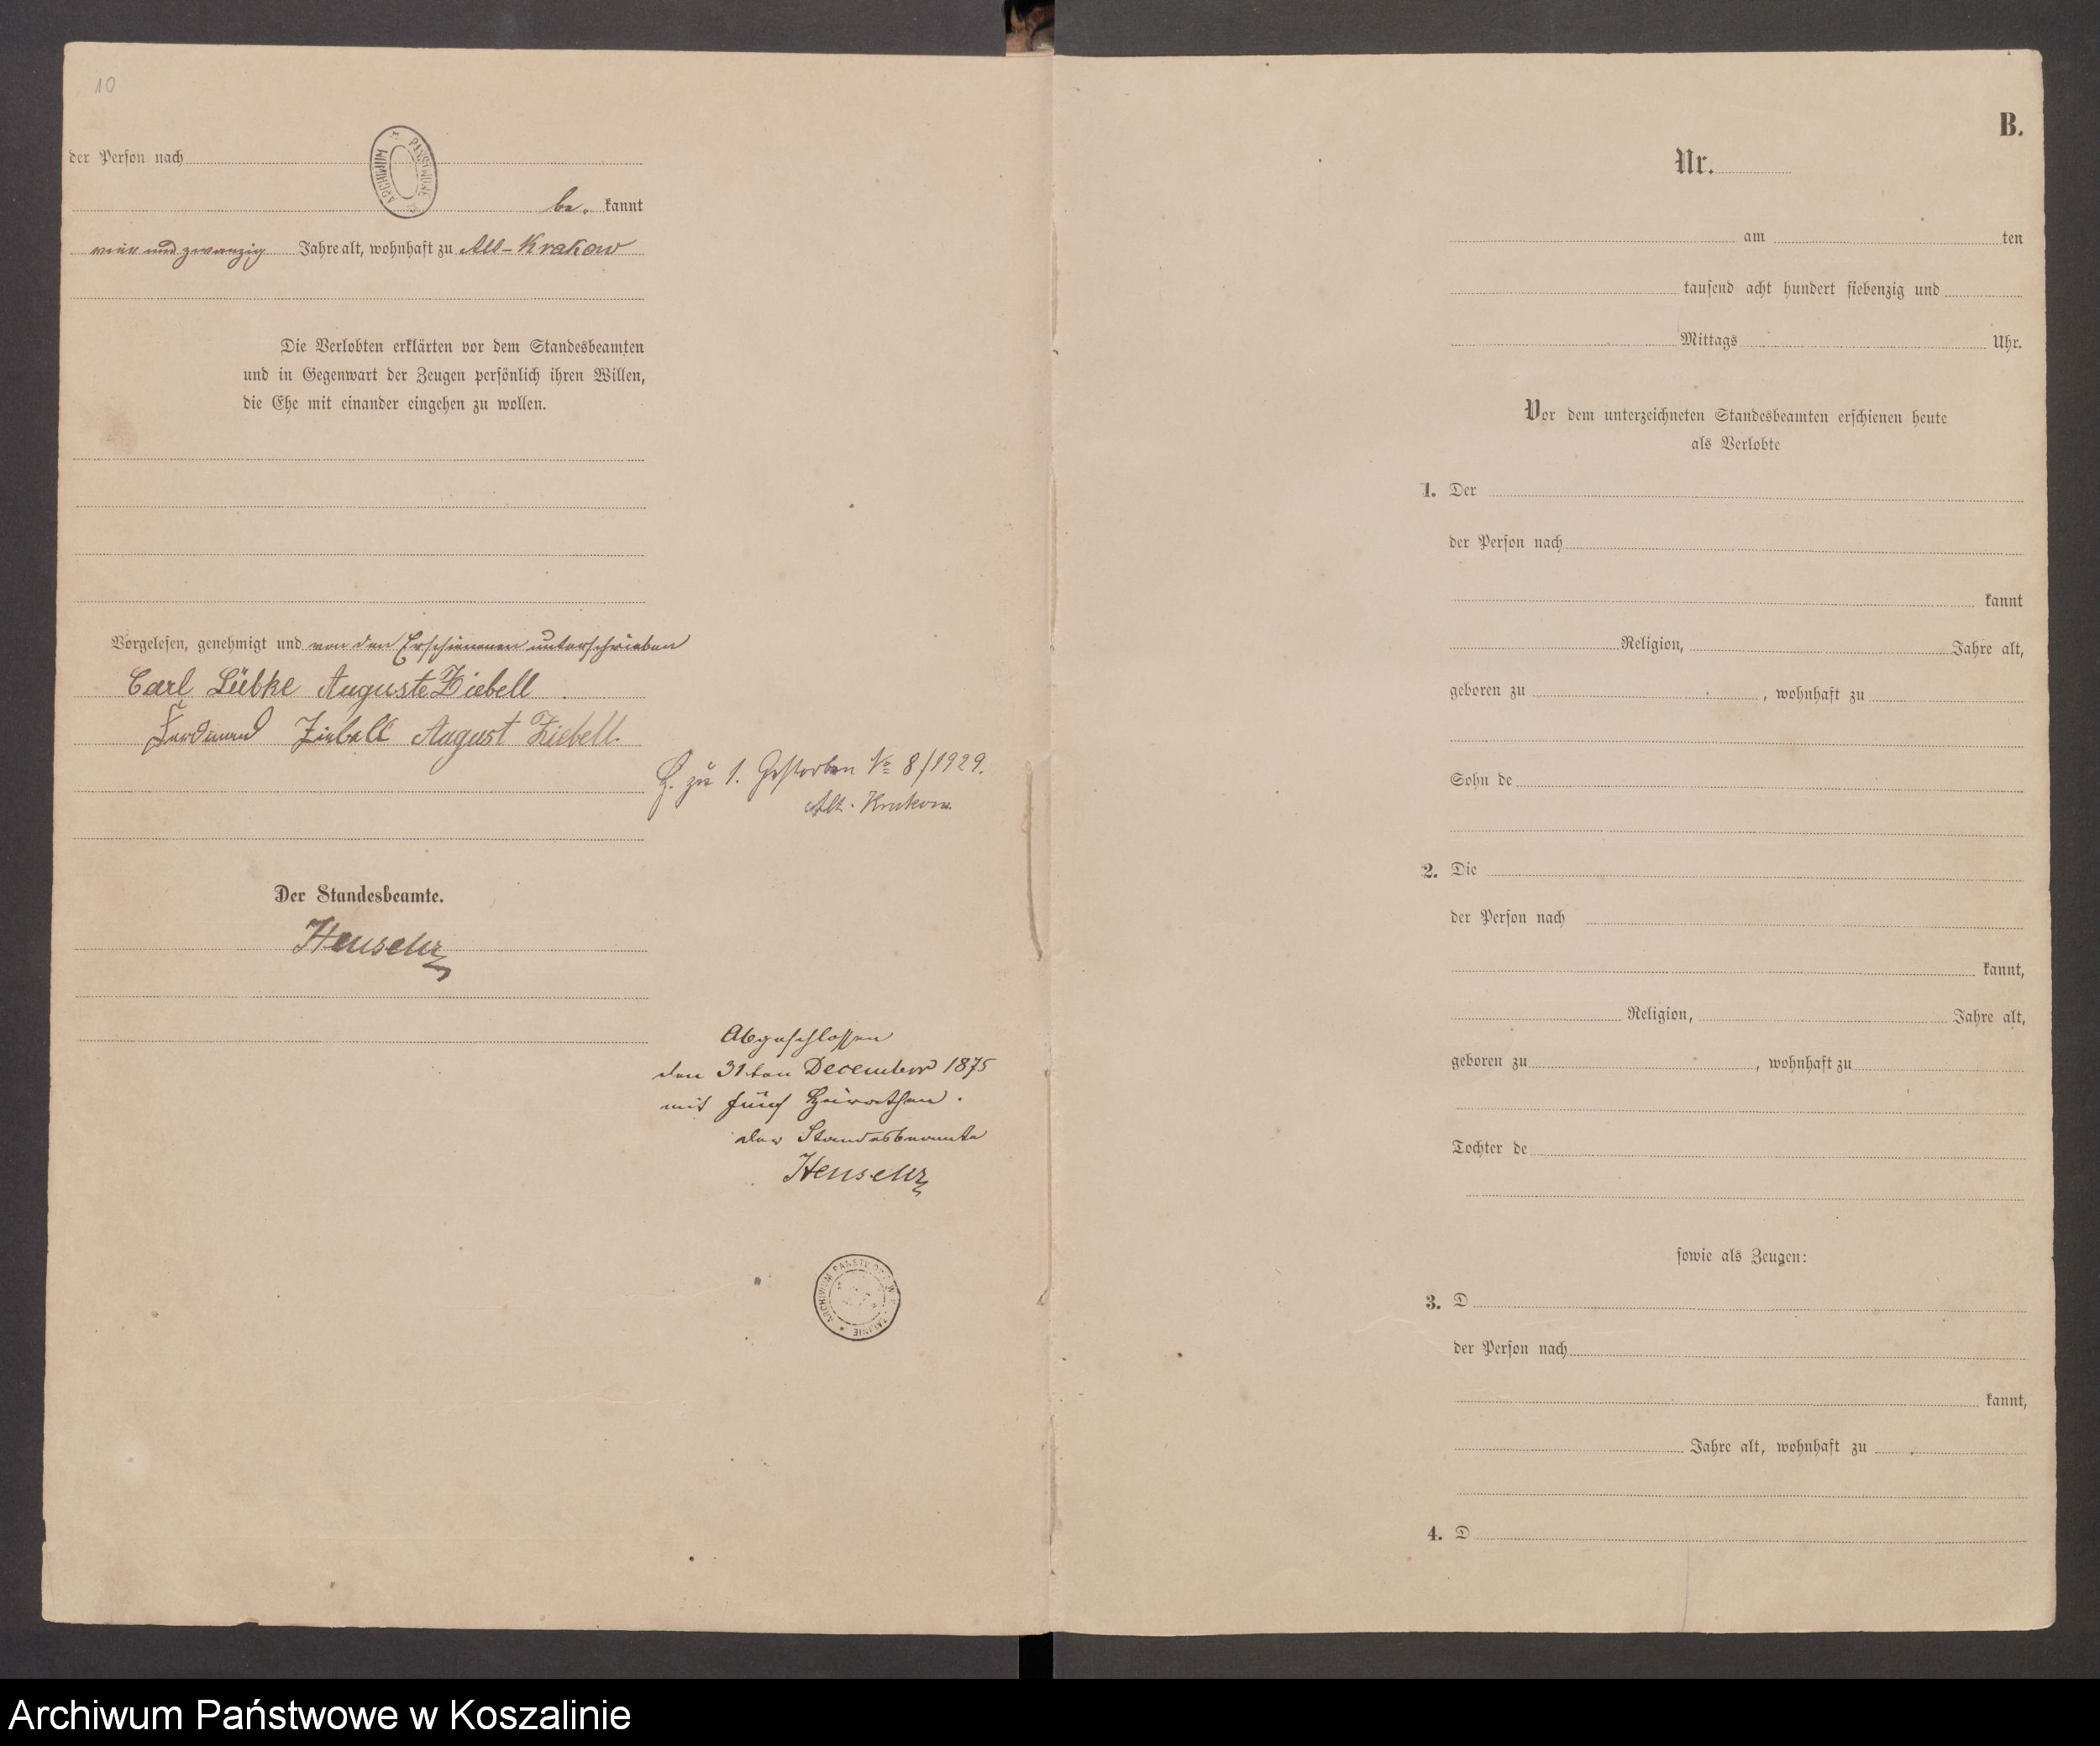 10
der Person nach
be. kannt
und zwanzig Jahre alt, wohnhaft zu Alt-Krakow
Die Verlobten erklärten vor dem Standesbeamten
und in Gegenwart der Zeugen persönlich ihren Willen,
die Ehe mit einander eingehen zu wollen.
Vorgelesen, genehmigt und von den Erschienenen unterschrieben
Carl Lübke Auguste Ziebell
Ferdinand Ziebell August Ziebell.
zu 1. Gestorben No 8/1929.
Alt-Krakow
Der Standesbeamte.
Abgeschlossen
den 31ten December 1875
mit fünf Heirathen.
der Standesbeamte
ARCHIWUM PAŃSTWOWE
B.
Nr.
am ten
tausend acht hundert siebenzig und
Mittags Uhr.
Vor dem unterzeichneten Standesbeamten erschienen heute
als Verlobte
1. Der
der Person nach
kannt
Religion, Jahre alt,
geboren zu , wohnhaft zu
Sohn de
2. Die
der Person nach
kannt,
Religion, Jahre alt,
geboren zu , wohnhaft zu
Tochter de
sowie als Zeugen:
3. D
der Person nach
kannt,
Jahre alt, wohnhaft zu
4. D
Archiwum Państwowe w Koszalinie